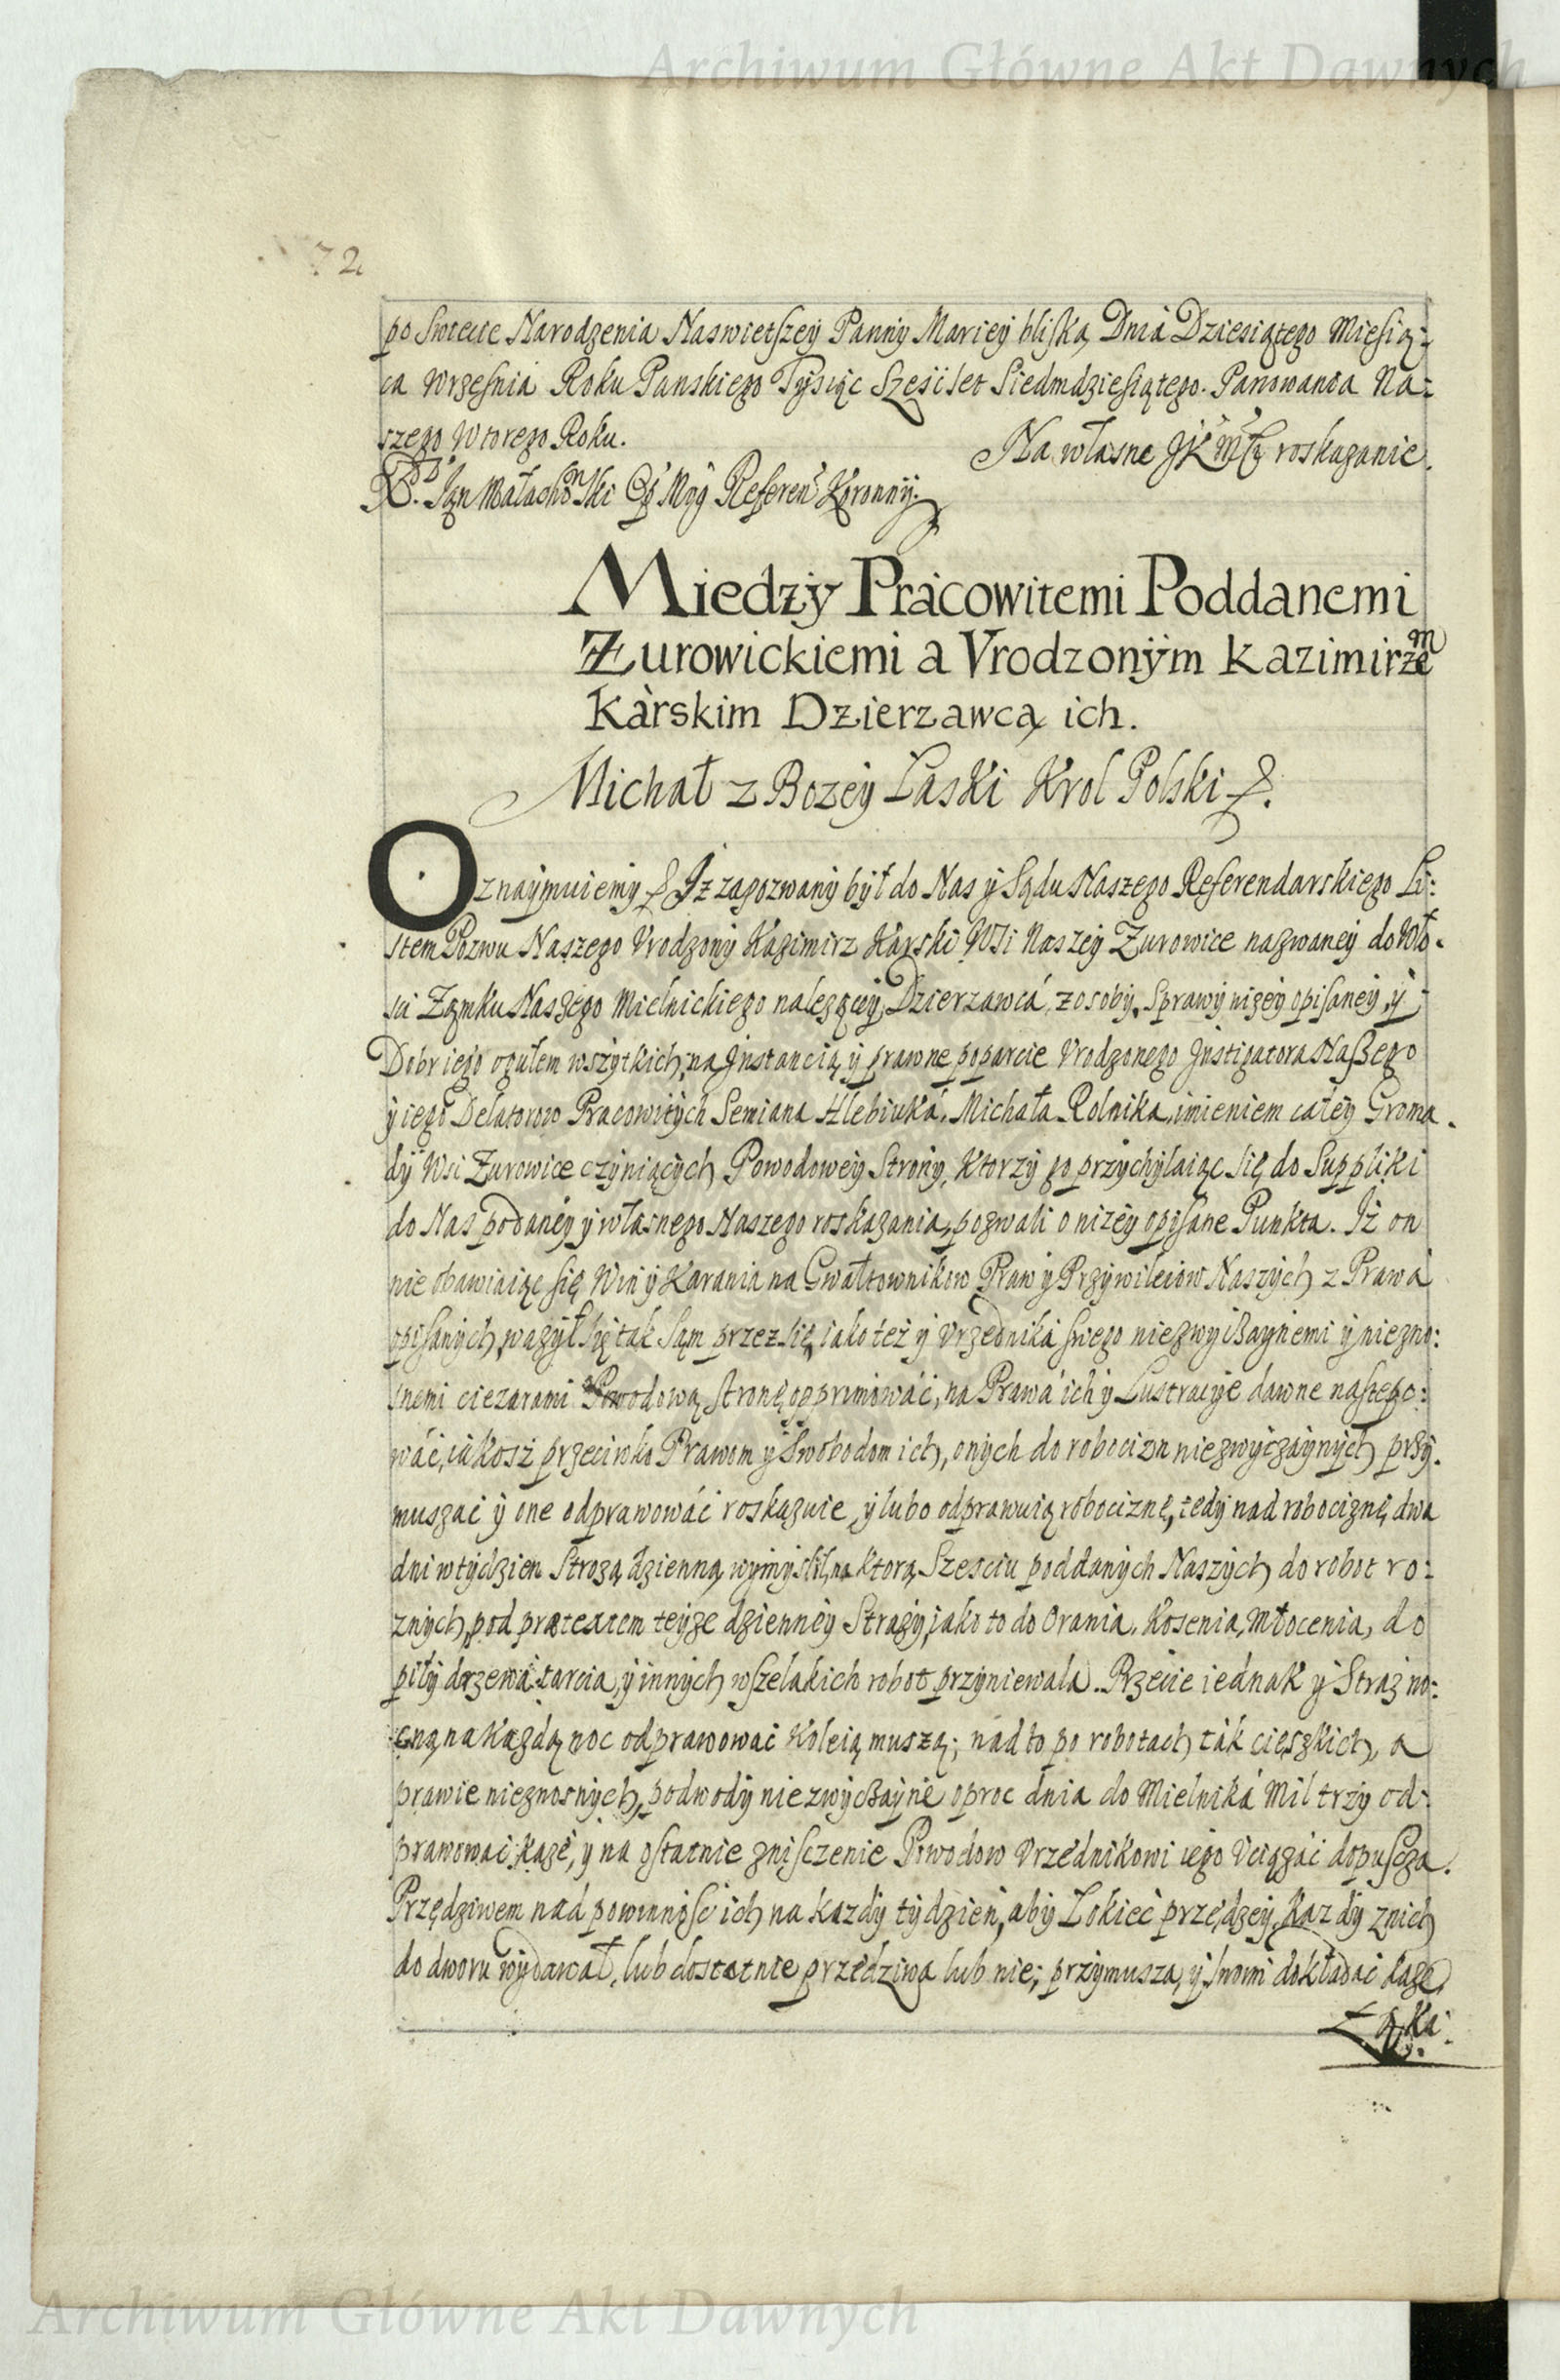 Archiwum Główne Akt Dawnych
72
po Swiecie Narodzenia Naswietszey Panny Mariey bliską, Dnia Dziesiątego Miesią-
ca Wrzesnia Roku Panskiego Tysiąc Szescset Siedmdziesiątego. Panowania Na-
szego Wtorego Roku.
Na własne JKMsci roskazanie.
X. Jan Małachowski Referen Koronny.
Miedzy Pracowitemi Poddanemi
Zurowickiemi a Vrodzonym Kazimirzem
Karskim Dzierzawcą ich.
Michał z Bozey Łaski Krol Polski &.
Oznaymuiemy & Iz zapozwany był do Nas y Sądu Naszego Referendarskiego Li-
stem Pozwu Naszego Vrodzony Kazimirz Karski Wsi Naszey Zurowice nazwaney do Wło-
sci Zamku Naszego Mielnickiego nalezącey Dzierzawca, z osoby, Sprawy nizey opisaney, y
Dobr iego ogułem wszytkich, na Instancią y prawne poparcie Vrodzonego Instigatora Naszego
y iego Delatorow Pracowitych Semiana Hlebiuka, Michała Rolnika, imieniem całey Groma-
dy Wsi Zurowice czyniących Powodowey Strony, Ktorzy go przychylaiąc się do Suppliki
do Nas podaney y własnego Naszego roskazania, pozwali o nizey opisane Punkta. Iż on
nie obawiaiąc się Win y Karania na Gwałtownikow Praw y Przywileiow Naszych z Prawa
opisanych, wazył się tak sam przez się, iako też y Vrzędnika swego niezwyczaynemi y niezno-
snemi ciezarami Powodową stronę opprimować, na Prawa ich y Lustracye dawne nastepo-
wać, iakosz przeciwko Prawom y Swobodom ich, onych do robocizn niezwyczaynych przy-
muszać y one odprawować roskazuie, y lubo odprawuią robociznę, tedy nad robociznę dwa
dni w tydzien Strozą dzienną wymyslił, na ktorą Szesciu poddanych Naszych do robot ro-
znych, pod prætextem teyze dzienney Strazy, iako to do Orania, Kosenia, Młocenia, do
piły drzewa tarcia, y innych wszelakich robot przyniewala. Przecie iednak y Straz no-
cną na Kazdą noc odprawować Koleią muszą; nadto po robotach tak cięszkich, a
prawie nieznosnych, podwody niezwyczayne oproc dnia do Mielnika Mil trzy od-
prawować kaze, y na ostatnie zniszczenie Powodow Vrzędnikowi iego Vciązać dopuscza.
Przędziwem nad powinnosc ich na kazdy tydzien, aby Łokieć przędzey Kazdy z nich
do dworu wydawał, lub dostatnie przędziwa lub nie; przymusza, y swoim dokładać kaze,
Łąki
Archiwum Główne Akt Dawnych